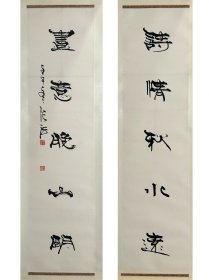 詩情秋水遠
畫意晚山明